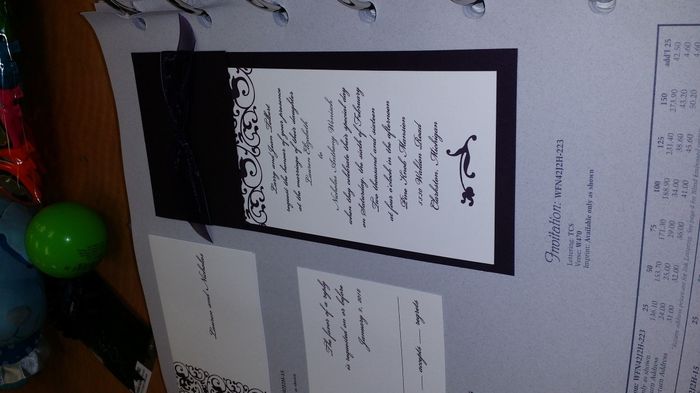 Larry and Jean Talbert
request the honour of your presence
at the marriage of their daughter
Lauren Elizabeth
to
Nicholas Anthony
when they celebrate their special day
on Saturday, the sixth of February
Two thousand and sixteen
at four o'clock in the afternoon
Pine Knob Mansion
Waldon Road
Clarkston, Michigan
Lauren and Nicholas
The favor of a reply
is requested on or before
January 2, 2016
accepts regrets
Invitation: WFN42J2H-223
Lettering: TCS
Verse: W470
Imprint: Available only as shown
25 50 75 100 125 150 add'l 25
WFN42J2H-223 136.10 153.70 171.30 188.90 231.40 273.90 42.50
as shown 24.00 25.00 29.00 34.00 38.60 43.20 4.60
Return Address 31.00 32.00 36.00 41.00 45.60 50.20
25